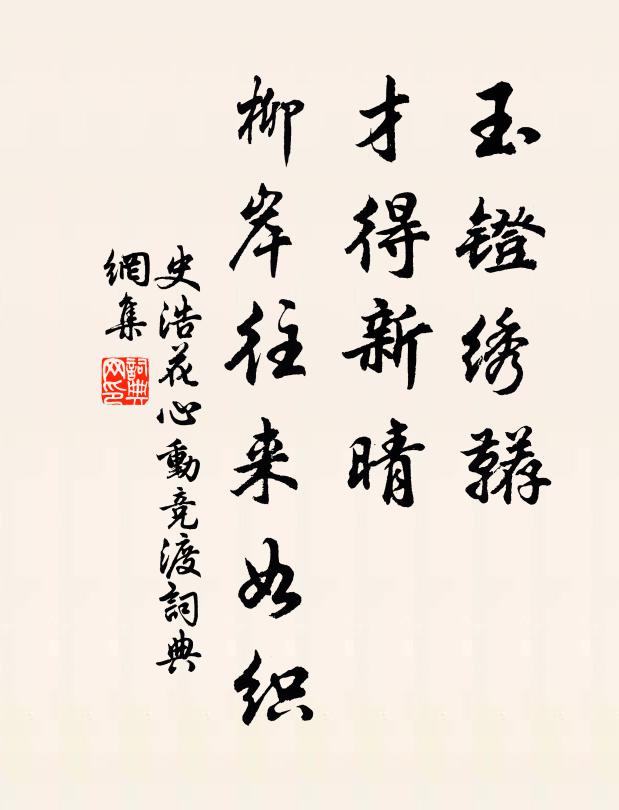 玉镫绣鞯
才得新晴
柳岸往来如织
史浩花心動竞渡詞典
網集
詞典
网印